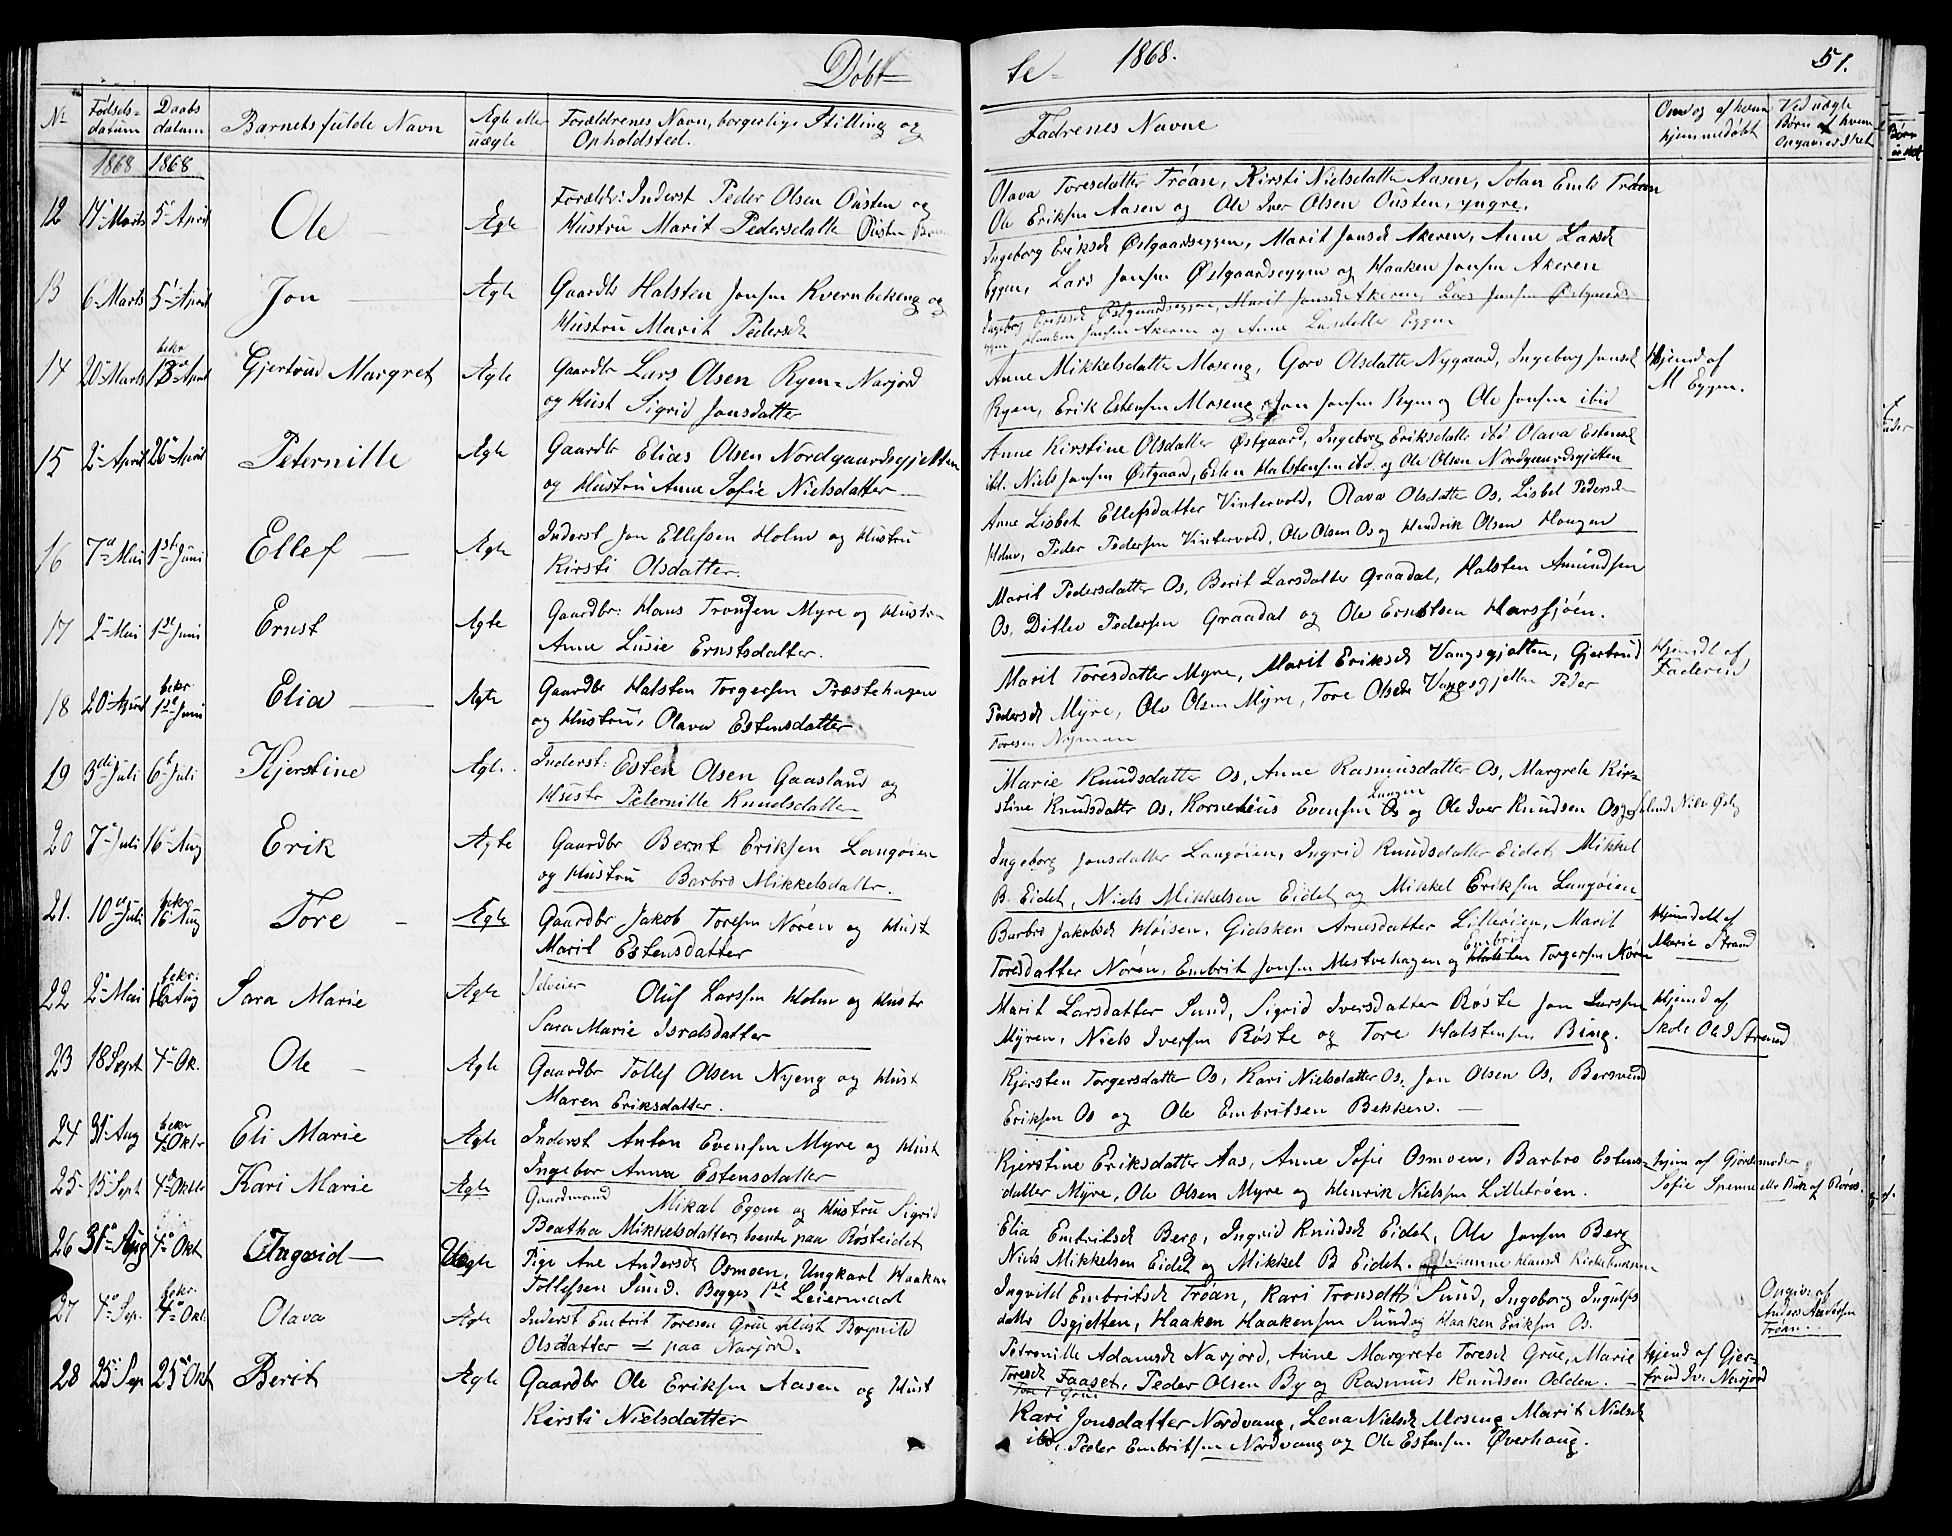 Døbt
No Fødsels- Daabs Barnets fulde Navn Ægte eller Forældrenes Navn, borgerlige Stilling og
datum datum uægte Opholdsted.
1868 1868
12 17 Marts 5 April Ole Ægte Foreldr: Inderst Peder Olsen Ousten og
Hustru Marit Pedersdatter Ousten
13 6 Marts 5 April Jon Ægte Gaardbr Halsten Jonsen Kvernbekeng og
Hustru Marit Pedersd
14 20 Marts bekr 13 April Gjertrud Margret Ægte Gaardbr Lars Olsen Ryen-Narjord
og Hust Sigrid Jonsdatter
15 2 April 26 April Peternille Ægte Gaardbr Elias Olsen Nordgaardsgjetten
og Hustru Anne Sofie Nielsdatter
16 7de Mai 1ste Juni Ellef Ægte Inderst Jon Ellefsen Holm og Hustru
Kirsti Olsdatter.
17 2 Mai 1ste Juni Ernst Ægte Gaardbr: Hans Tronsen Myre og Hustru
Anne Lusie Ernstsdatter.
18 20 April bekr 1ste Juni Elia Ægte Gaardbr Halsten Torgersen Præstehagen
og Hustru, Olava Estensdatter
19 3die Juli 6t Juli Kjerstine Ægte. Inderst: Esten Olsen Gaasland og
Hustr Peternille Knudsdatter
20 7 Juli 16 Aug Erik Ægte Gaardbr Bernt Eriksen Langøien
og Hustru Barbro Mikkelsdatter.
21. 10de Juli bekr 16 Aug Tore Ægte Gaardbr Jakob Toresen Norén og Hust
Marit Estensdatter
22 2 Mai bekr: 16 Aug Sara Marie Ægte Selveier Oluf Larssen Holm og Hustr
Sara Marie Isralsdatter
23 18 Sept 4 Ok. Ole Ægte Gaardbr Tollef Olsen Nyeng og Hust
Maren Eriksdatter.
24 31 Aug bekr 4 Oktr Eli Marie Ægte Inderst Anton Evensen Myre og Hust
Ingebor Anna Estensdatter
25 15 Sept 4 Oktbr Kari Marie Ægte Gaardmand Mikal Eggen og Hustru Sigrid
Beatha Mikkelsdatter, boende paa Røsteidet
26 31 Aug 4 Okt Ingvid Uægte Pige Ane Andersd Osmoen, Ungkarl Haaken
Tollefsen Sund. Begges 1ste Leiermaal
27 4 Sep. bekr. 4 Okt. Olava Ægte Inderst Embrit Toresen Grue Hust Brynild
Olsdatter paa Narjord.
28 25 Sep 25 Okt Berit Ægte Gaardbr Ole Eriksen Aasen og Hust
Kirsti Nielsdatter
te 1868. 51.
Fadrenes Navne Om og af hvem Ved uægte
hjemmedøbt Børn af hvem
Olava Toresdatter Tróan, Kirsti Nielsdatter Aasen, Jolan Emb Tróan
Ole Eriksen Aasen og Ole Iver Olsen Ousten, yngre.
Ingeborg Eriksd Østgaardseggen, Marit Jonsd Akeren, Anne Larsd
Eggen, Lars Jonsen Østgaardseggen og Haaken Jonsen Akeren
Ingeborg Eriksd Østgaardseggen, Marit Jonsd Akeren, Lars Jonsen Østgaards
eggen Haaken Jonsen Akeren og Anne Larsdatter Eggen
Anne Mikkelsdatter Moseng, Goro Olsdatter Nygaard, Ingeborg Jonsd Hjemd af
Ryen, Erik Estensen Moseng, Jon Jonsen Ryen og Ole Jonsen ibid M Eggen.
Anne Kirstine Olsdatter Østgaard, Ingeborg Eriksdatter ibd Olava Estensd
ibd. Niels Jonsen Østgaard, Esten Halstensen ibd. og Ole Olsen Nordgaardsgjetten
Anne Lisbet Ellefsdatter Vintervold, Olava Olsdatter Os, Lisbet Pedersd
Holm, Peder Pedersen Vintervold, Ole Olsen Os og Hendrik Olsen Hougen
Marit Pedersdatter Os, Berit Larsdatter Graadal, Halsten Amundsen
Os, Ditlev Pedersen Graadal og Ole Ernstsen Harsjøen.
Marit Toresdatter Myre, Marit Eriksd Vangsgjetten, Gjertrud Hjemdt af
Pedersd Myre, Ole Olsen Myre, Tore Olsen Vangsgjetten Peder Faderen
Toresen Nymoen
Marie Knudsdatter Os, Anne Rasmusdatter Os, Margrete Kir-
stine Knudsdatter Os, Kornelius Evensen Os og Ole Iver Knudsen Os
Ingeborg Jonsdatter Langøien, Ingrid Knudsdatter Eidet Mikkel
B. Eidet, Niels Mikkelsen Eidet og Mikkel Eriksen Langøien
Barbro Jakobsd Høisen, Gidsken Arnesdatter Lilleøien, Marit Hjemdøbt af
Toresdatter Norén, Embrit Jonsen Mestvehagen og Embrit Torgersen Marie Strand
Marit Larsdatter Sund, Sigrid Iversdatter Røste Jon Larssen Hjemd af
Myren, Niels Iversen Røste og Tore Halstensen Bing. Skole Ole I Strand
Kjersten Torgersdatter Os, Kari Nielsdatter Os, Jon Olsen Os, Bersvend
Eriksen Os og Ole Embritsen Bekken.
Kjerstine Eriksdatter Aas, Anne Sofie Osmoen, Barbro Estens- hjem af Gjordemoder
datter Myre, Ole Olsen Myre og Henrik Nielsen Lilletróen. Sofie
Elia Embritsd Berg, Ingrid Knudsd Eidet, Ole Jonsen Berg
Niels Mikkelsen Eidet og Mikkel B Eidet.
Ingvild Embritsd Tróan, Kari Tronsdt Sund, Ingeborg Ingulfs Ongiv. af
datter Osgjetten, Haaken Haakensen Sund og Haaken Eriksen Os. Anders Andersen
Tróan.
Petronille Adamsd Narjord, Anne Margrete Toresd Grue, Marie hjemd af Gjer-
Toresd Faaset, Peder Olsen By og Rasmus Knudsen Odden. trud Iv. Narjord
Kari Jonsdatter Nordvang, Lena Nielsd Moseng Marit Nielsd
ibd. Peder Embritsen Nordvang og Ole Estensen Øverhaug.